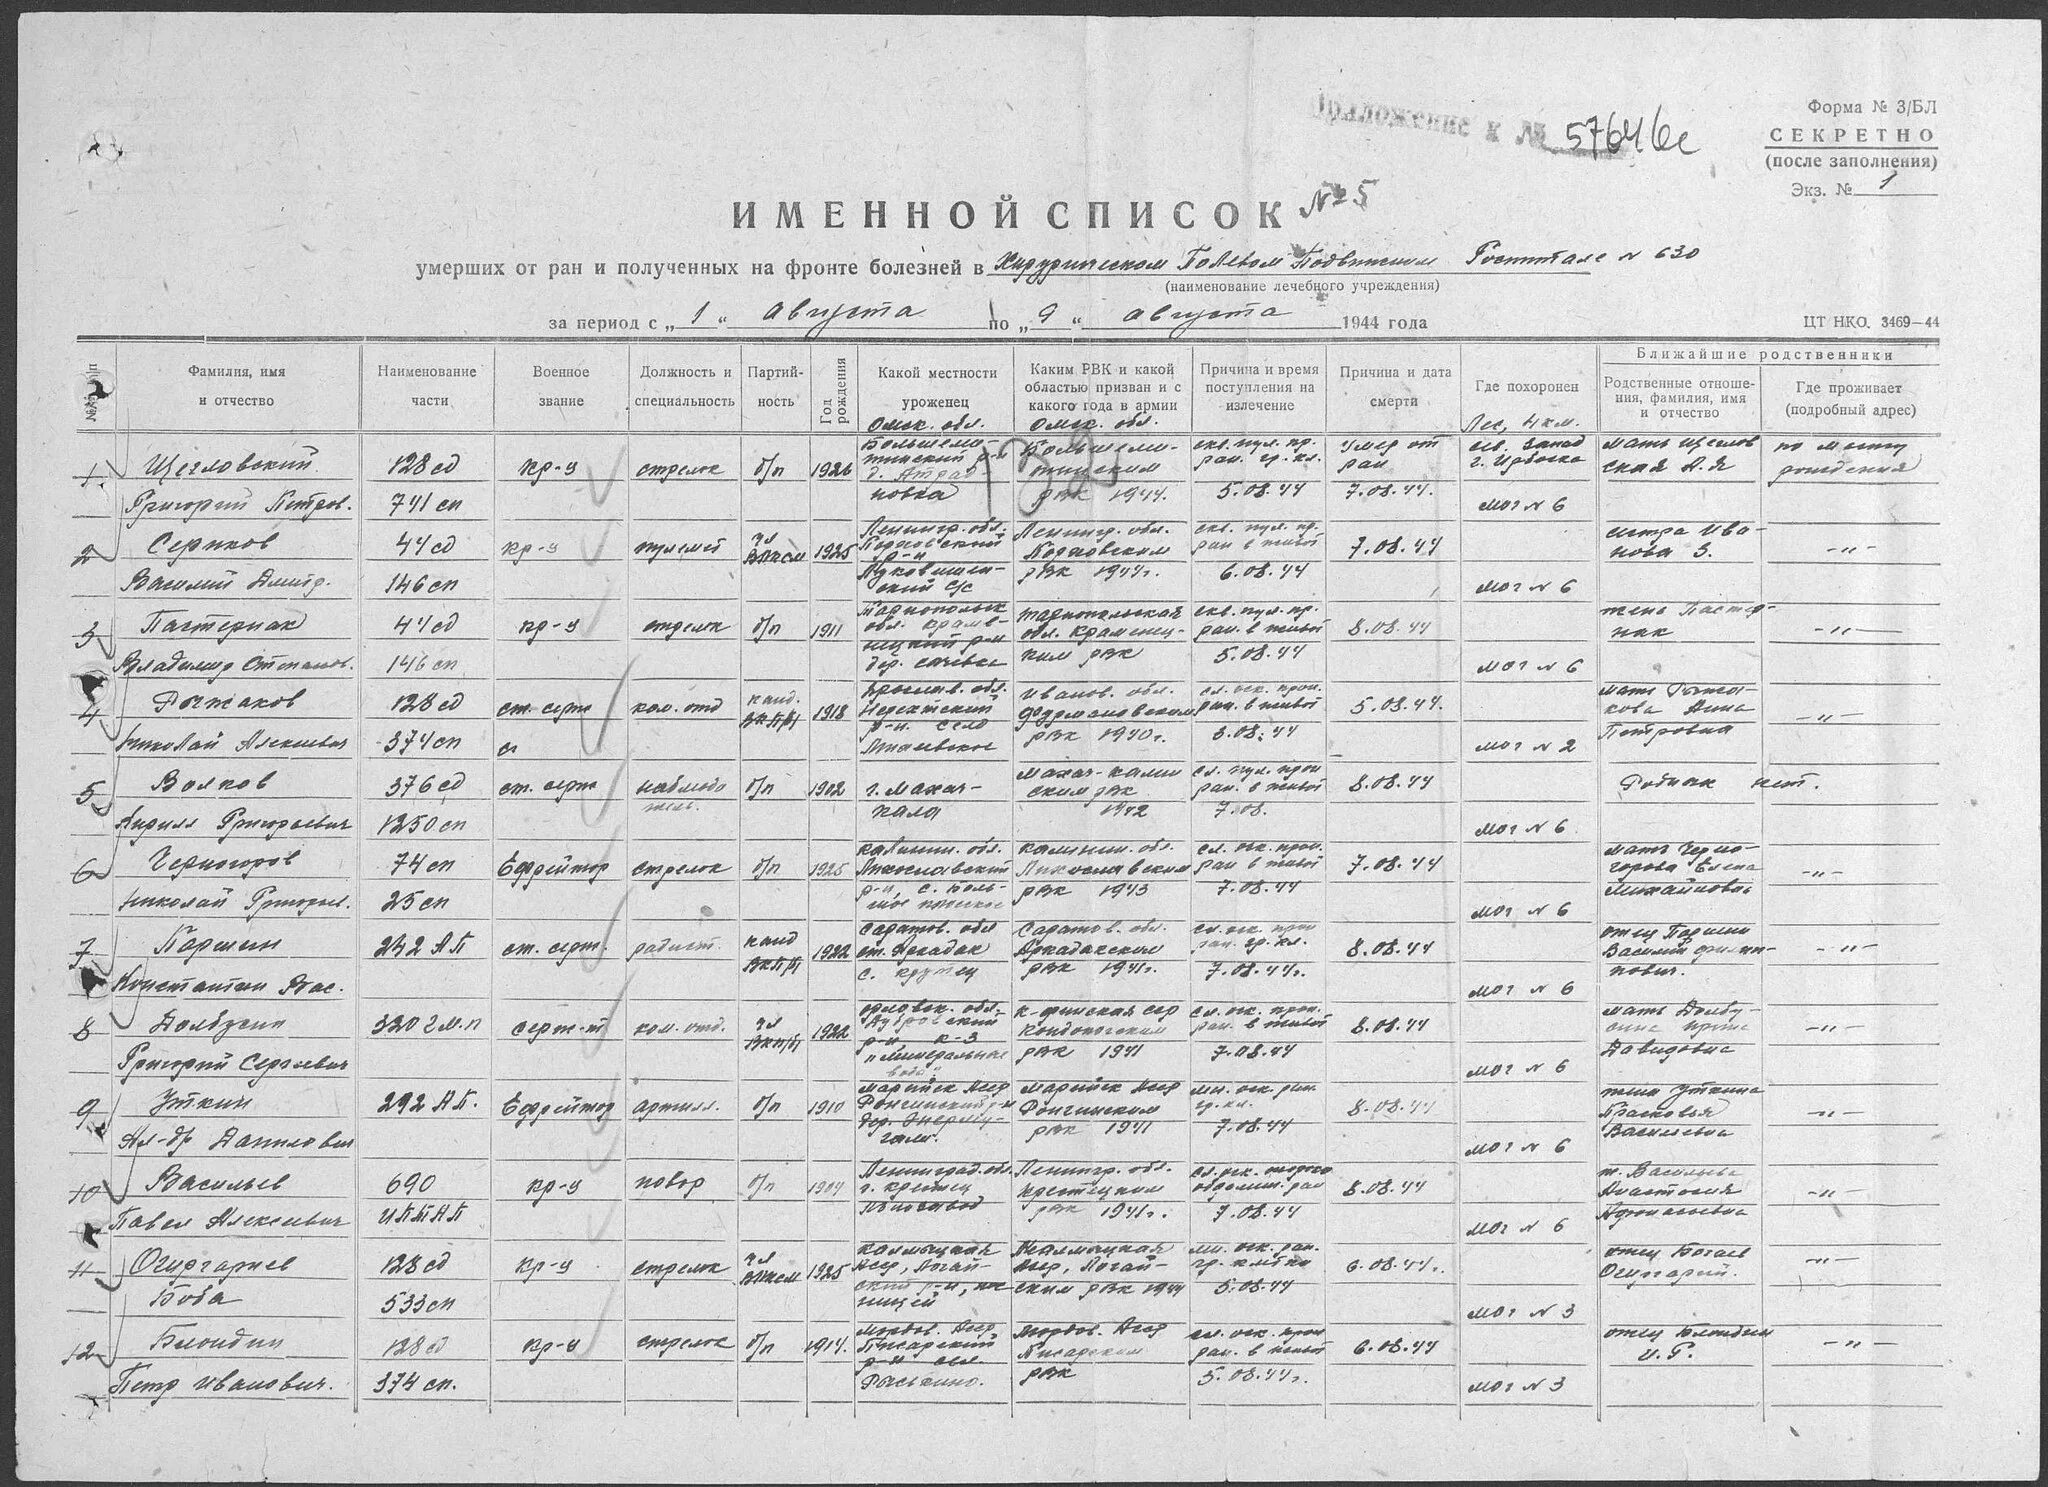 Приложение к № 57646с
Форма № 3/БЛ
СЕКРЕТНО
(после заполнения)
Экз. № 1
ИМЕННОЙ СПИСОК № 5
умерших от ран и полученных на фронте болезней в Хирургическом Полевом Подвижном Госпитале N 630
(наименование лечебного учреждения)
за период с „1“ августа по „9“ августа 1944 года
ЦТ НКО. 3469—44
№№ п/п
Фамилия, имя и отчество
Наименование части
Военное звание
Должность и специальность
Партийность
Год рождения
Какой местности уроженец
Каким РВК и какой областью призван и с какого года в армии
Причина и время поступления на излечение
Причина и дата смерти
Где похоронен
Ближайшие родственники
Родственные отношения, фамилия, имя и отчество
Где проживает (подробный адрес)
1 Щегловский Григорий Петров.
128 сд 741 сп
кр-ц стрелок б/п 1926
Омск. обл.
Омск. обл. РВК 1944.
скв. пул. пр. ран. гр. кл. 5.08.44
Умер от ран 7.08.44.
Лес, 4 км. сев. запад мог N 6
мать Щегловская А.Я
по месту рождения
2 Серпков Василий Дмитр.
44 сд 146 сп
кр-ц пулемет чл ВЛКСМ 1925
Ленингр. обл.
Ленингр. обл. РВК 1944г.
скв. пул. пр. ран в живот 6.08.44
7.08.44
мог N 6
сестра Иванова З.
—„—
3 Пастернак Владимир Степанов.
44 сд 146 сп
кр-ц стрелок б/п 1911
Тарнопольск обл. Кременецкий р-н
Тарнопольская обл. Кременецким РВК
скв. пул. пр. ран. в живот 5.08.44
8.08.44
мог N 6
жена Пастернак
—„—
4 Рыжаков Николай Алексеевич
128 сд 374 сп
ст. серж ком. отд канд. ВКП/б 1918
Ярослав. обл. Нерехтский р-н. село
Иванов. обл. Фурмановским РВК 1940г.
сл. оск. прон. ран. в живот 3.08.44
5.08.44.
мог N 2
мать Рыжакова Анна Петровна
—„—
5 Волков Кирилл Григорьевич
376 сд 1250 сп
ст. серж наблюдатель. б/п 1902
г. Махачкала
РВК 1942
сл. пул. прон ран. в живот 7.08.
8.08.44
мог N 6
Родных нет.
6 Черногоров Николай Григорьев.
74 сп 25 сп
Ефрейтор стрелок б/п 1925
Калинин. обл. Лихославский р-н,
Калинин. обл. Лихославским РВК 1943
сл. оск. прон. ран в живот 7.08.44
7.08.44
мог N 6
мать Черногорова Елена Михайловна
—„—
7 Паршин Константин Вас.
242 АП
ст. серж. радист. канд ВКП/б 1922
Саратов. обл ст. Аркадак
Саратов. обл. Аркадакским РВК 1941г.
сл. оск. прон ран. гр. кл. 7.08.44г.
8.08.44
мог N 6
отец Паршин Василий Филиппович.
—„—
8 Долбусин Григорий Сергеевич
320 г м.п
серж-т ком. отд. чл ВКП/б 1922
Орловск. обл. р-н,
К-Финская сср Кондопожским РВК 1941
сл. оск. прон. ран. в живот 7.08.44
8.08.44
мог N 6
мать Давидовна
—„—
9 Уткин Ал-др Данилович
292 АП.
Ефрейтор артилл. б/п 1910
Марийск Асср Ронгинский р-н
Марийск Асср Ронгинским РВК 1941
мн. оск. ран. гр. кл. 7.08.44
8.08.44
мог N 6
жена Уткина Прасковья Васильевна
—„—
10 Васильев Павел Алексеевич
690 ИПТАП
кр-ц повар б/п 1904
Ленинград. обл. г. Крестец
Ленингр. обл. Крестецким РВК 1941г.
7.08.44
8.08.44
мог N 6
ж. Васильева Анастасия Афанасьевна
—„—
11 Огиргариев Боба
128 сд 533 сп
кр-ц стрелок чл ВЛКСМ 1925
Калмыцкая Асср,
Калмыцкая Асср, РВК 1944
мн. оск. ран. гр. клетки 5.08.44
6.08.44г.
мог N 3
отец Богаев
—„—
12 Блондин Петр Иванович.
128 сд 374 сп.
кр-ц стрелок б/п 1914.
Мордов. Асср р-н
Мордов. Асср РВК
сл. оск. прон ран. в живот 5.08.44г.
6.08.44
мог N 3
отец Блондин И.Г.
—„—